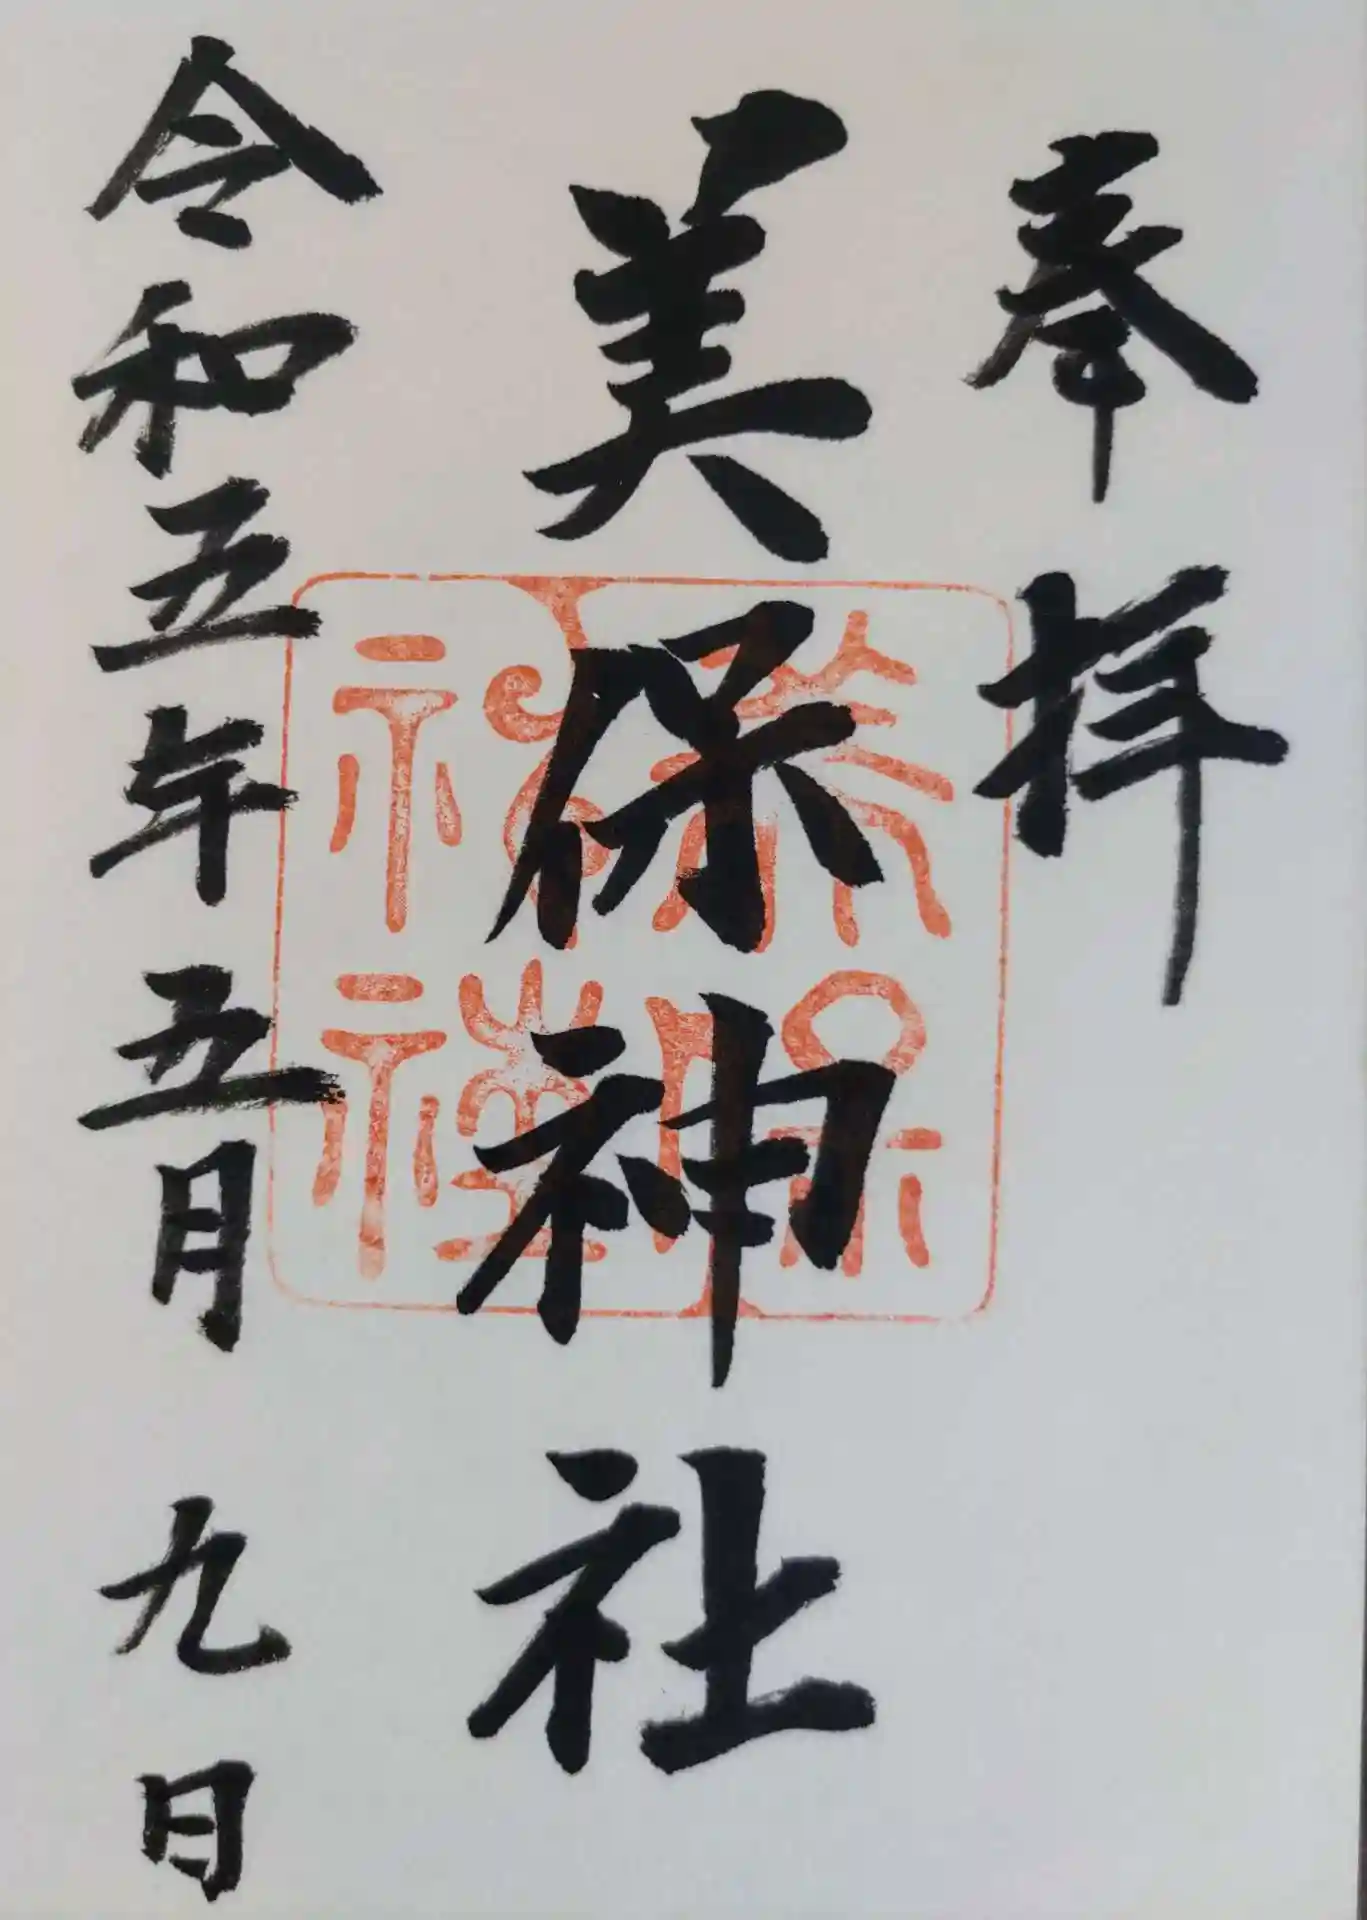 奉拝
美保神社
美保神社
令和五年五月九日